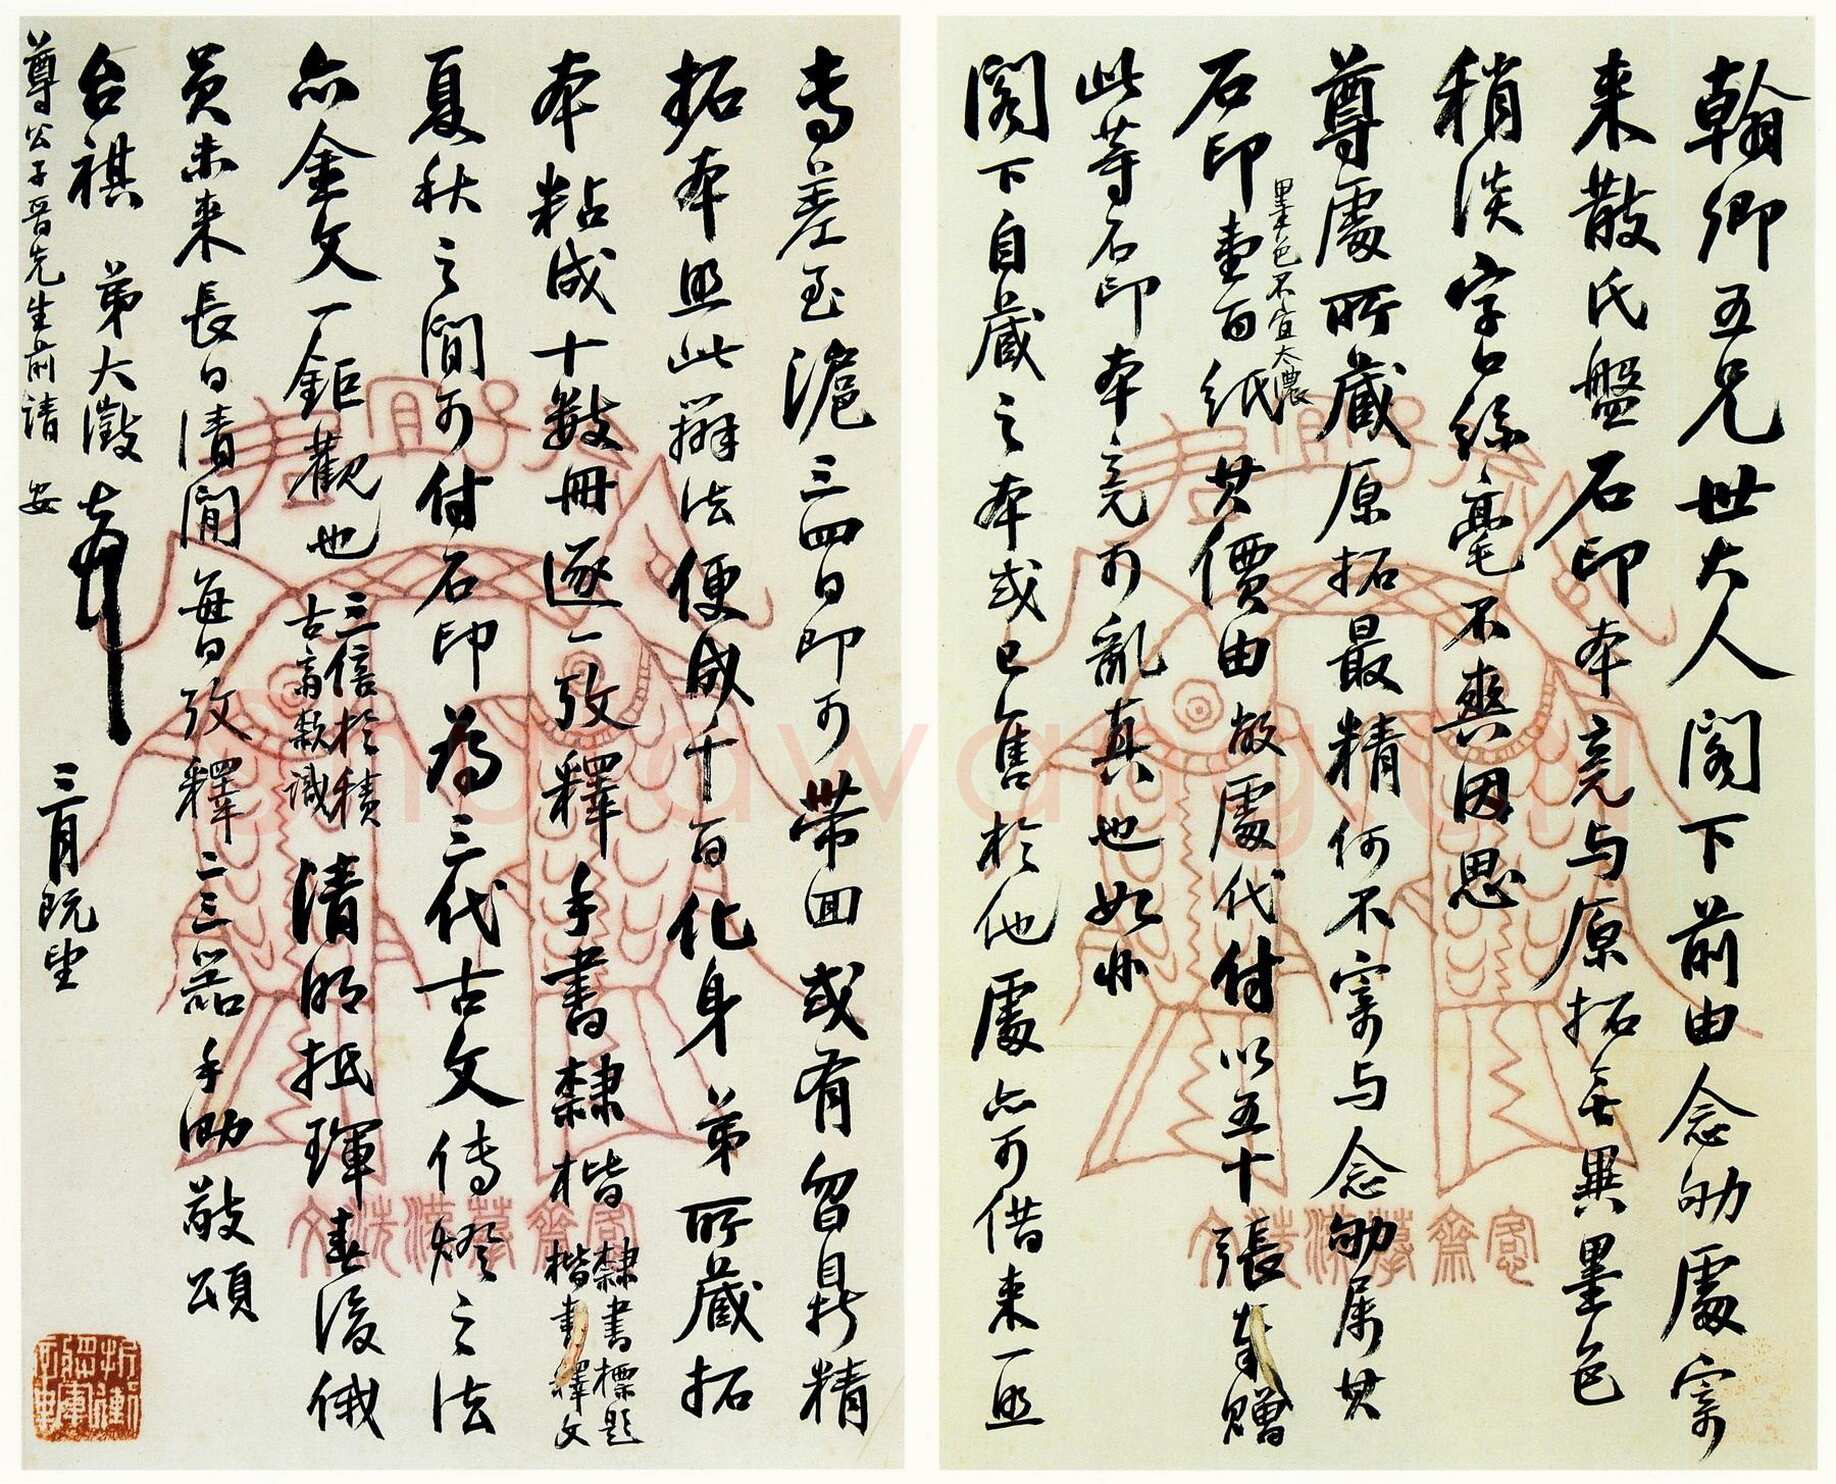 翰卿五兄世大人閣下前由念劬處寄
来散氏盤石印本竟与原拓無異墨色
稍淡字口絲毫不爽因思
尊處所藏原拓最精何不寄与念劬属其
石印壹百紙其價由敝處代付以五十張奉贈
墨色不宜太濃
此等石印本竟可亂真也如
閣下自藏之本或已售於他處亦可借来一照
專差至滬三四日即可帶回或有曶鼎精
拓本照此辦法便成千百化身弟所藏拓
本粘成十數冊逐一攷釋手書隸楷
隸書標題
楷書釋文
夏秋之間可付石印為三代古文傳燈之法
亦金文一鉅觀也
三倍於積
古齋款識
清明抵琿春後俄
員未来長日清閒每日攷釋二三器手泐敬頌
台祺 弟大澂
三月既望
尊公子晋先生前請安
愙齋摹漢洗文
shuhuawang.cn